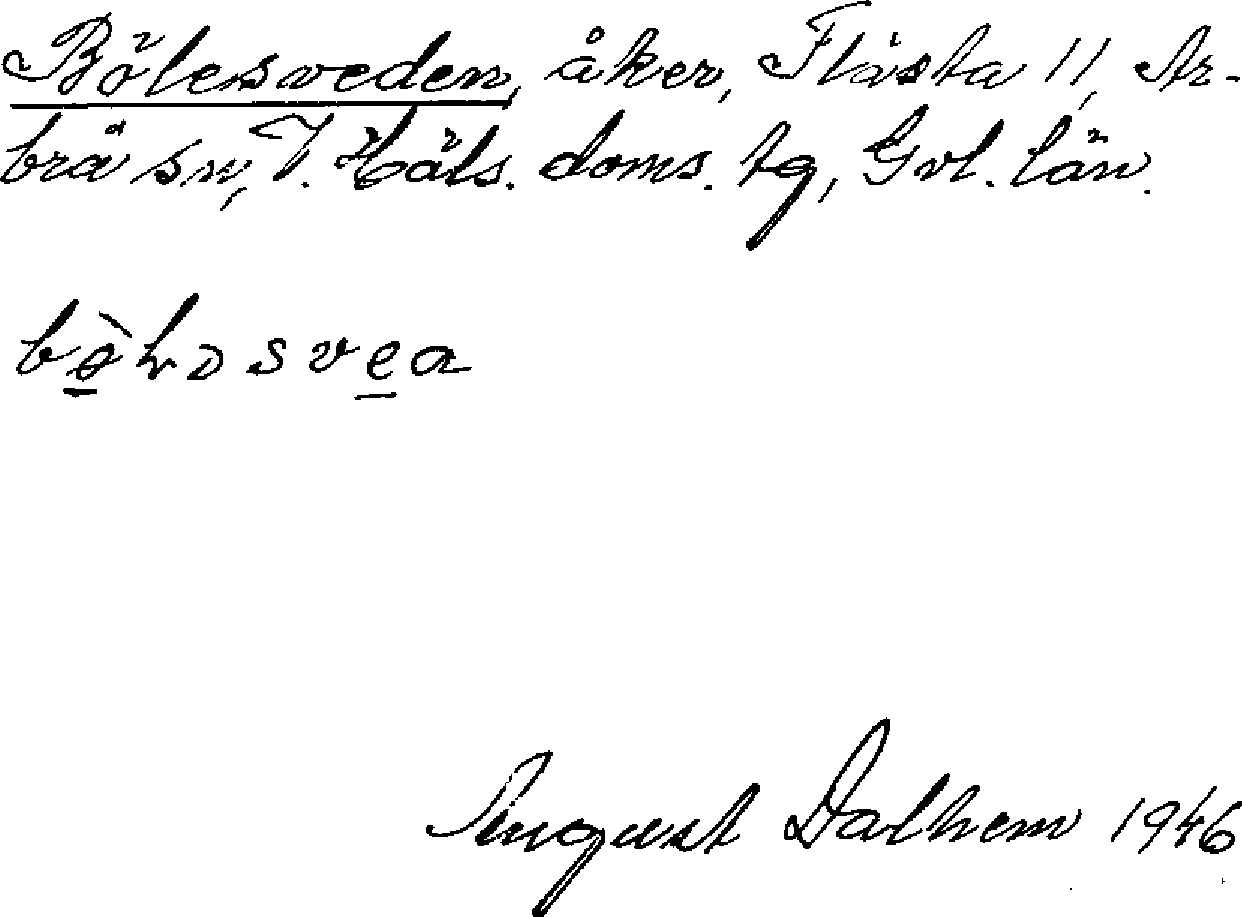 Bölesveden, åker, Flästa 11, Ar-
brå sn, V. Häls. doms. tg, Gvl. län.
August Dalhem 1946